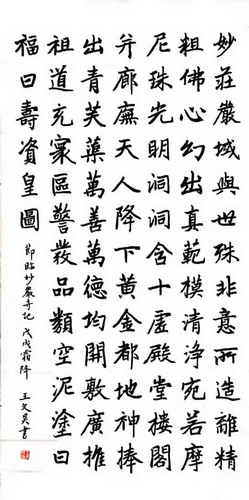 妙莊嚴域與世殊非意所造離精
粗佛心幻出真範模清淨宛若摩
尼珠光明洞洞含十虛殿堂樓閣
并廊廡天人降下黃金都地神捧
出青芙蕖萬善萬德均開敷廣推
祖道充寰區警發品類空泥塗曰
福曰壽資皇圖
節臨妙嚴寺記 戊戌霜降 王文英書